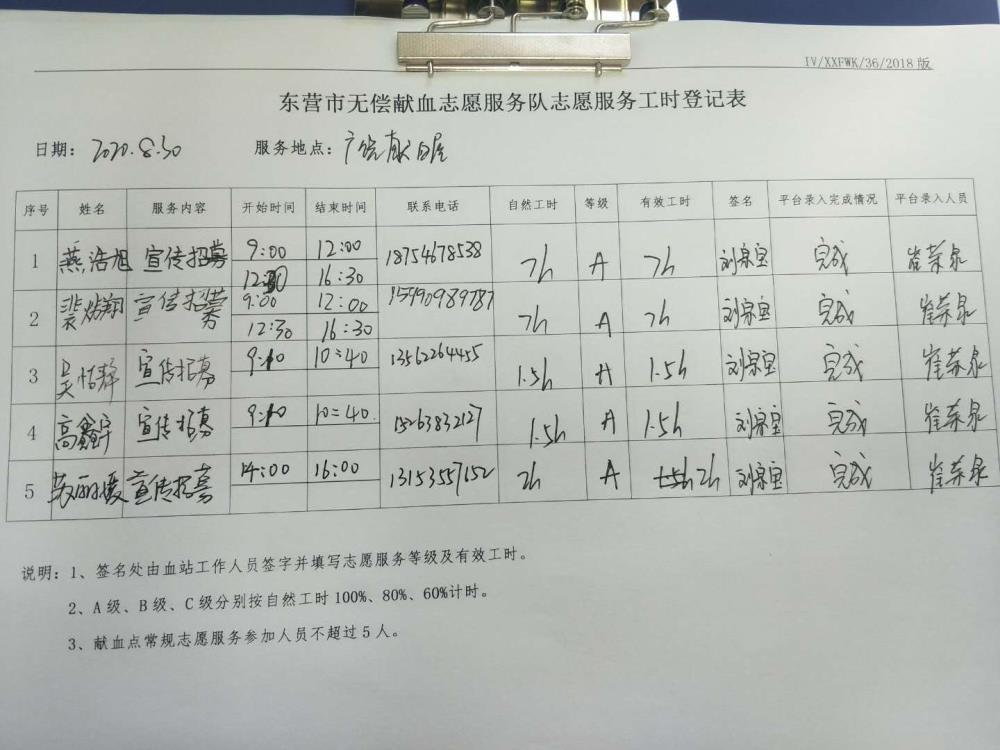 IV/XXFWK/36/2018版
东营市无偿献血志愿服务队志愿服务工时登记表
日期：2020.8.30 服务地点：广饶献血屋
序号 姓名 服务内容 开始时间 结束时间 联系电话 自然工时 等级 有效工时 签名 平台录入完成情况 平台录入人员
1 燕浩旭 宣传招募 9:00 12:00 18754678538 7h A 7h 刘泉宝 完成 崔荣泉
12:30 16:30
2 宣传招募 9:00 12:00 15990989787 7h A 7h 刘泉宝 完成 崔荣泉
12:30 16:30
3 吴怡静 宣传招募 9:10 10:40 13562264455 1.5h A 1.5h 刘泉宝 完成 崔荣泉
4 高鑫宇 宣传招募 9:10 10:40 15263832127 1.5h A 1.5h 刘泉宝 完成 崔荣泉
5 宣传招募 14:00 16:00 13153557152 2h A 2h 刘泉宝 完成 崔荣泉
说明：1、签名处由血站工作人员签字并填写志愿服务等级及有效工时。
2、A级、B级、C级分别按自然工时100%、80%、60%计时。
3、献血点常规志愿服务参加人员不超过5人。